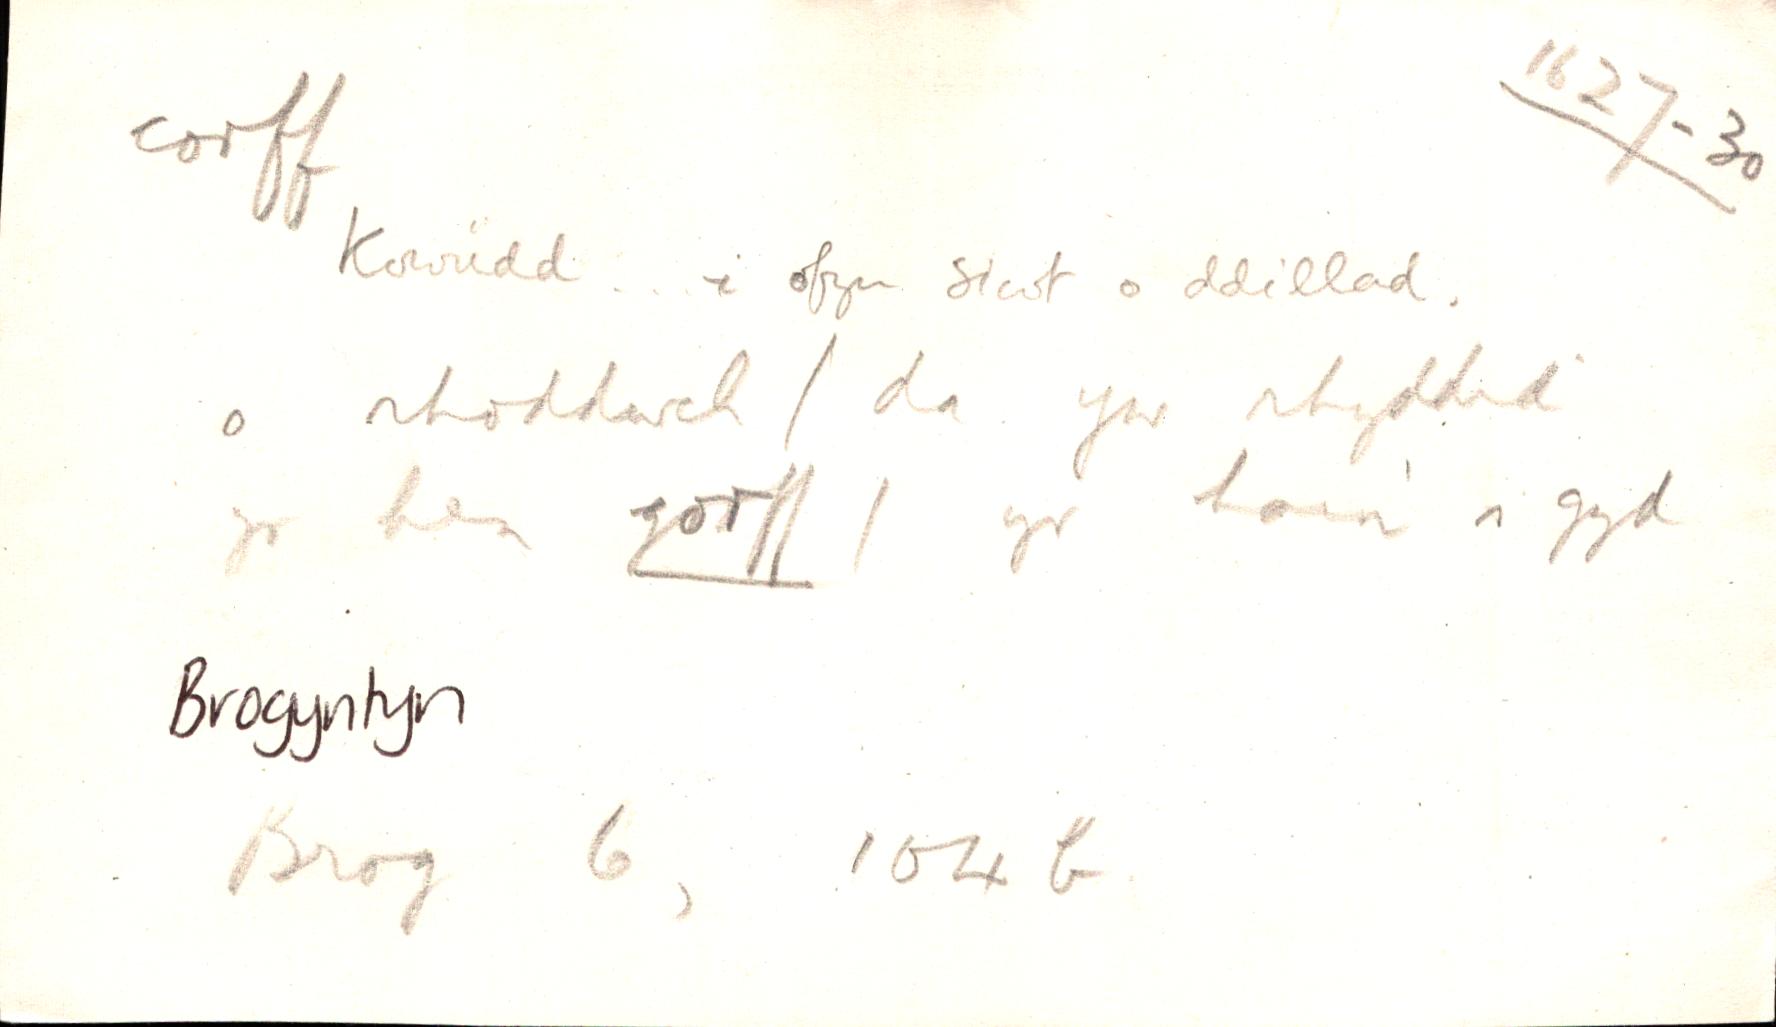 corff
1627-30
Kowüdd ... i ofyn siwt o ddillad.
o rhoddwch / da yw rhydhid
yr hen gorff / yr hain i gyd
Brogyntyn
Brog 6, 104b